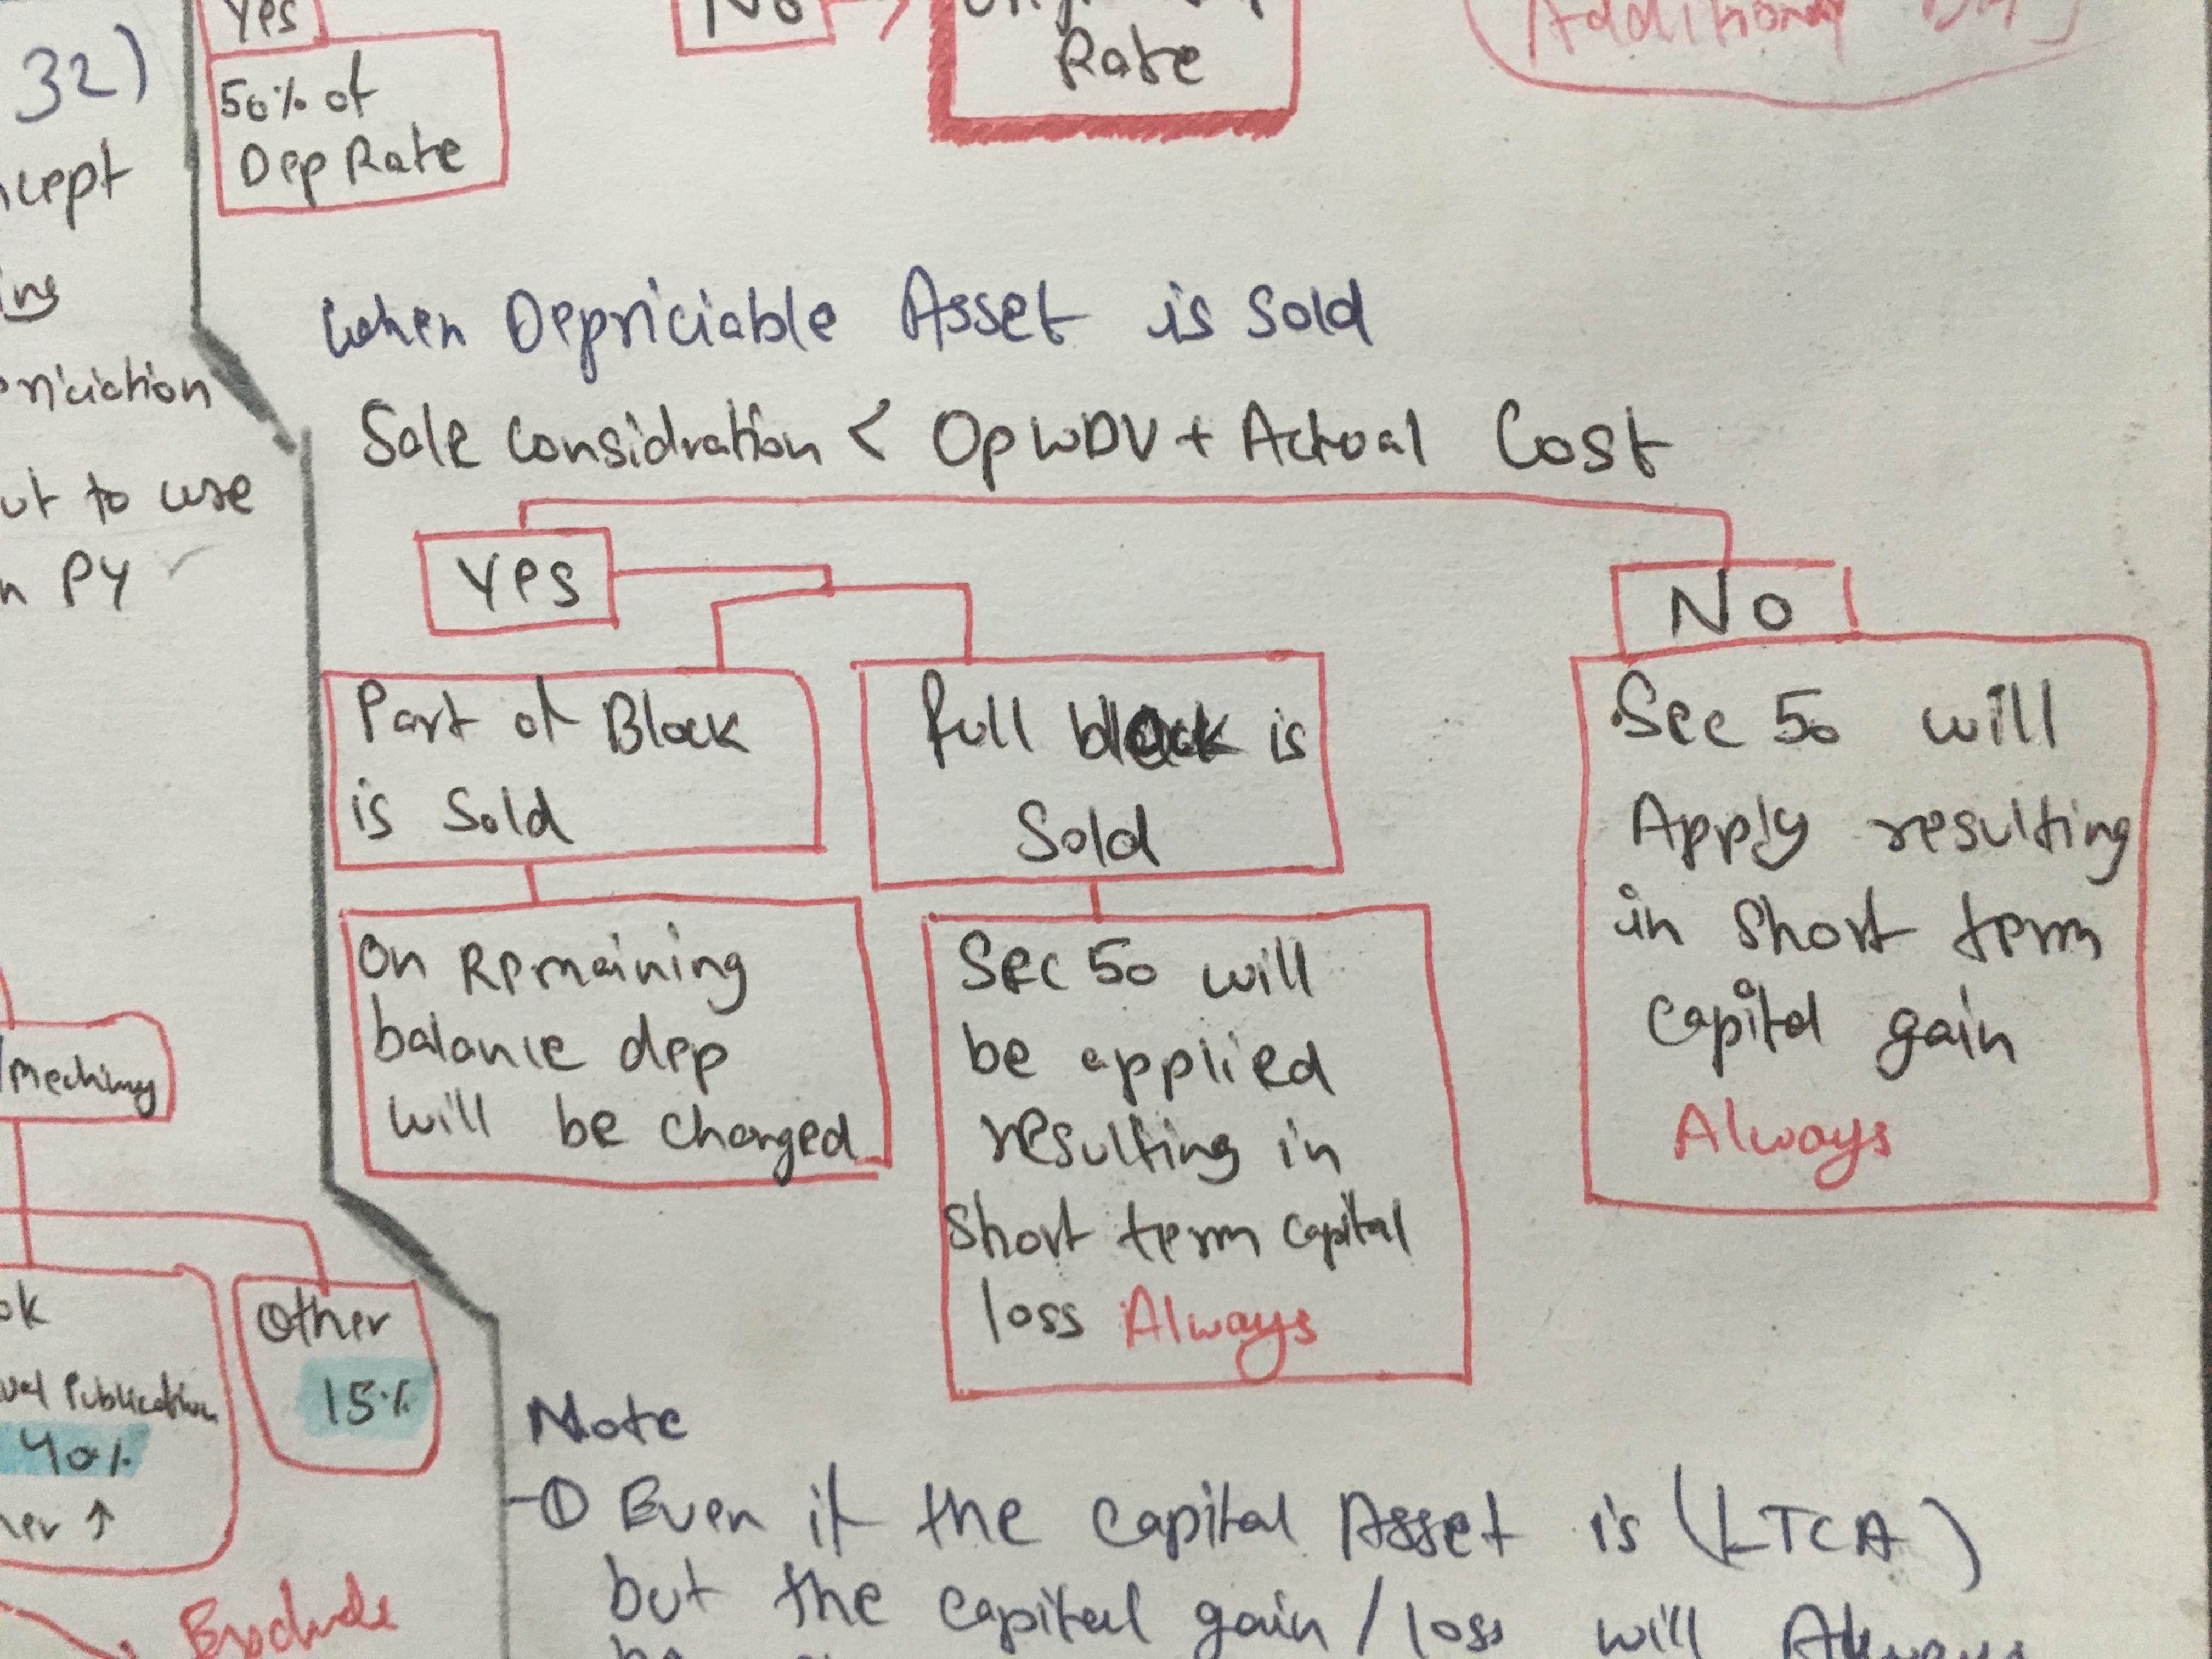 Yes
50% of
Dep Rate
No
Rate
Additional
32)
When Depriciable Asset is Sold
Sale Considration < Op WDV + Actual Cost
Yes
No
Part of Block
is Sold
full block is
Sold
On Remaining
balance dep
will be charged
Sec 50 will
be applied
resulting in
Short term capital
loss Always
Sec 50 will
Apply resulting
in Short term
capital gain
Always
to use
PY
Other
15%
Publication
40%
Exclude
Note
① Even if the capital Asset is (LTCA)
but the capital gain / loss will Always